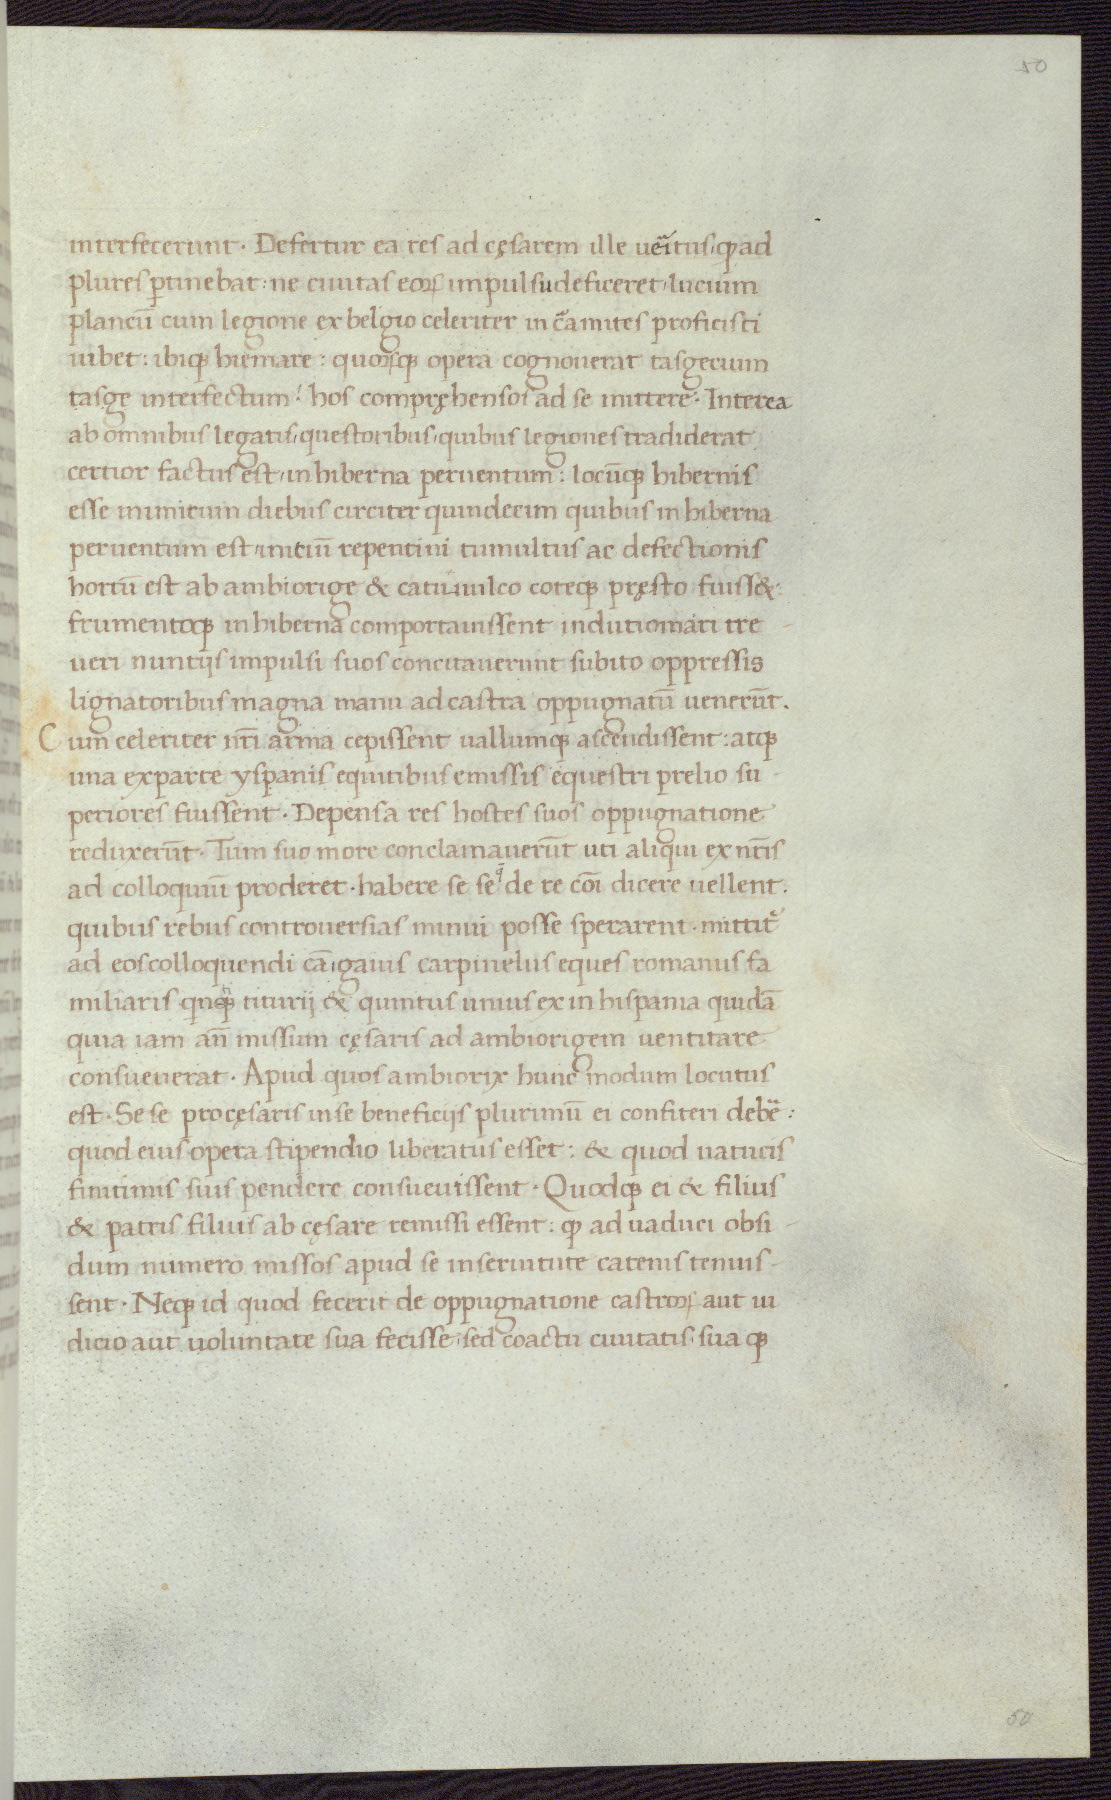 50
interfecerunt. Defertur ea res ad cęsarem ille ueritus qđ ad
plures ꝑtinebat: ne ciuitas eoꝝ impulsu deficeret, lucium
plancū cum legione ex belgio celeriter in c̄amites proficisci
iubet: ibiqꝫ hiemare: quoꝝqꝫ opera cognouerat tasgecium
tasge interfectum: hos compręhensos ad se mittere. Interea
ab omnibus legatis, questoribus, quibus legiones tradiderat
certior factus est, in hiberna peruentum: locūqꝫ hibernis
esse munitum diebus circiter quindecim quibus in hiberna
peruentum est, initiū repentini tumultus ac defectionis
hortū est ab ambiorige & catiuulco coteqꝫ pręsto fuiss&:
frumentoqꝫ in hiberna comportauissent indutiomari tre-
ueri nuntijs impulsi suos concitauerunt subito oppressis
lignatoribus magna manu ad castra oppugnatū uenerūt.
Cum celeriter nr̄i arma cepissent uallumqꝫ ascendissent: atqꝫ
una ex parte yspanis equitibus emissis equestri prelio su-
periores fuissent. Depensa res hostes suos oppugnatione
reduxerūt. Tum suo more conclamauerūt uti aliqui ex nr̄is
ad colloquiū proderet. habere se se q̄ de re cōi dicere uellent.
quibus rebus controuersias minui posse sperarent. mittit᷑
ad eos colloquendi cā, gaius carpinelus eques romanus fa
miliaris titurij & quintus unius ex in hispania quidā
quia iam an̄ missum cęsaris ad ambiorigem uentitare
consueuerat. Apud quos ambiorix hunc modum locutus
est. Se se pro cęsaris in se beneficijs plurimū ei confiteri debe:
quod eius opera stipendio liberatus esset: & quod uatucis
finitimis suis pendere consueuissent. Quodqꝫ ei & filius
& patris filius ab cęsare remissi essent: qđ aduaduci obsi-
dum numero missos apud se in seruitute catenis tenuis-
sent. Neqꝫ id quod fecerit de oppugnatione castroꝝ aut iu
dicio aut uoluntate sua fecisse, sed coactu ciuitatis, sua qꝫ
50